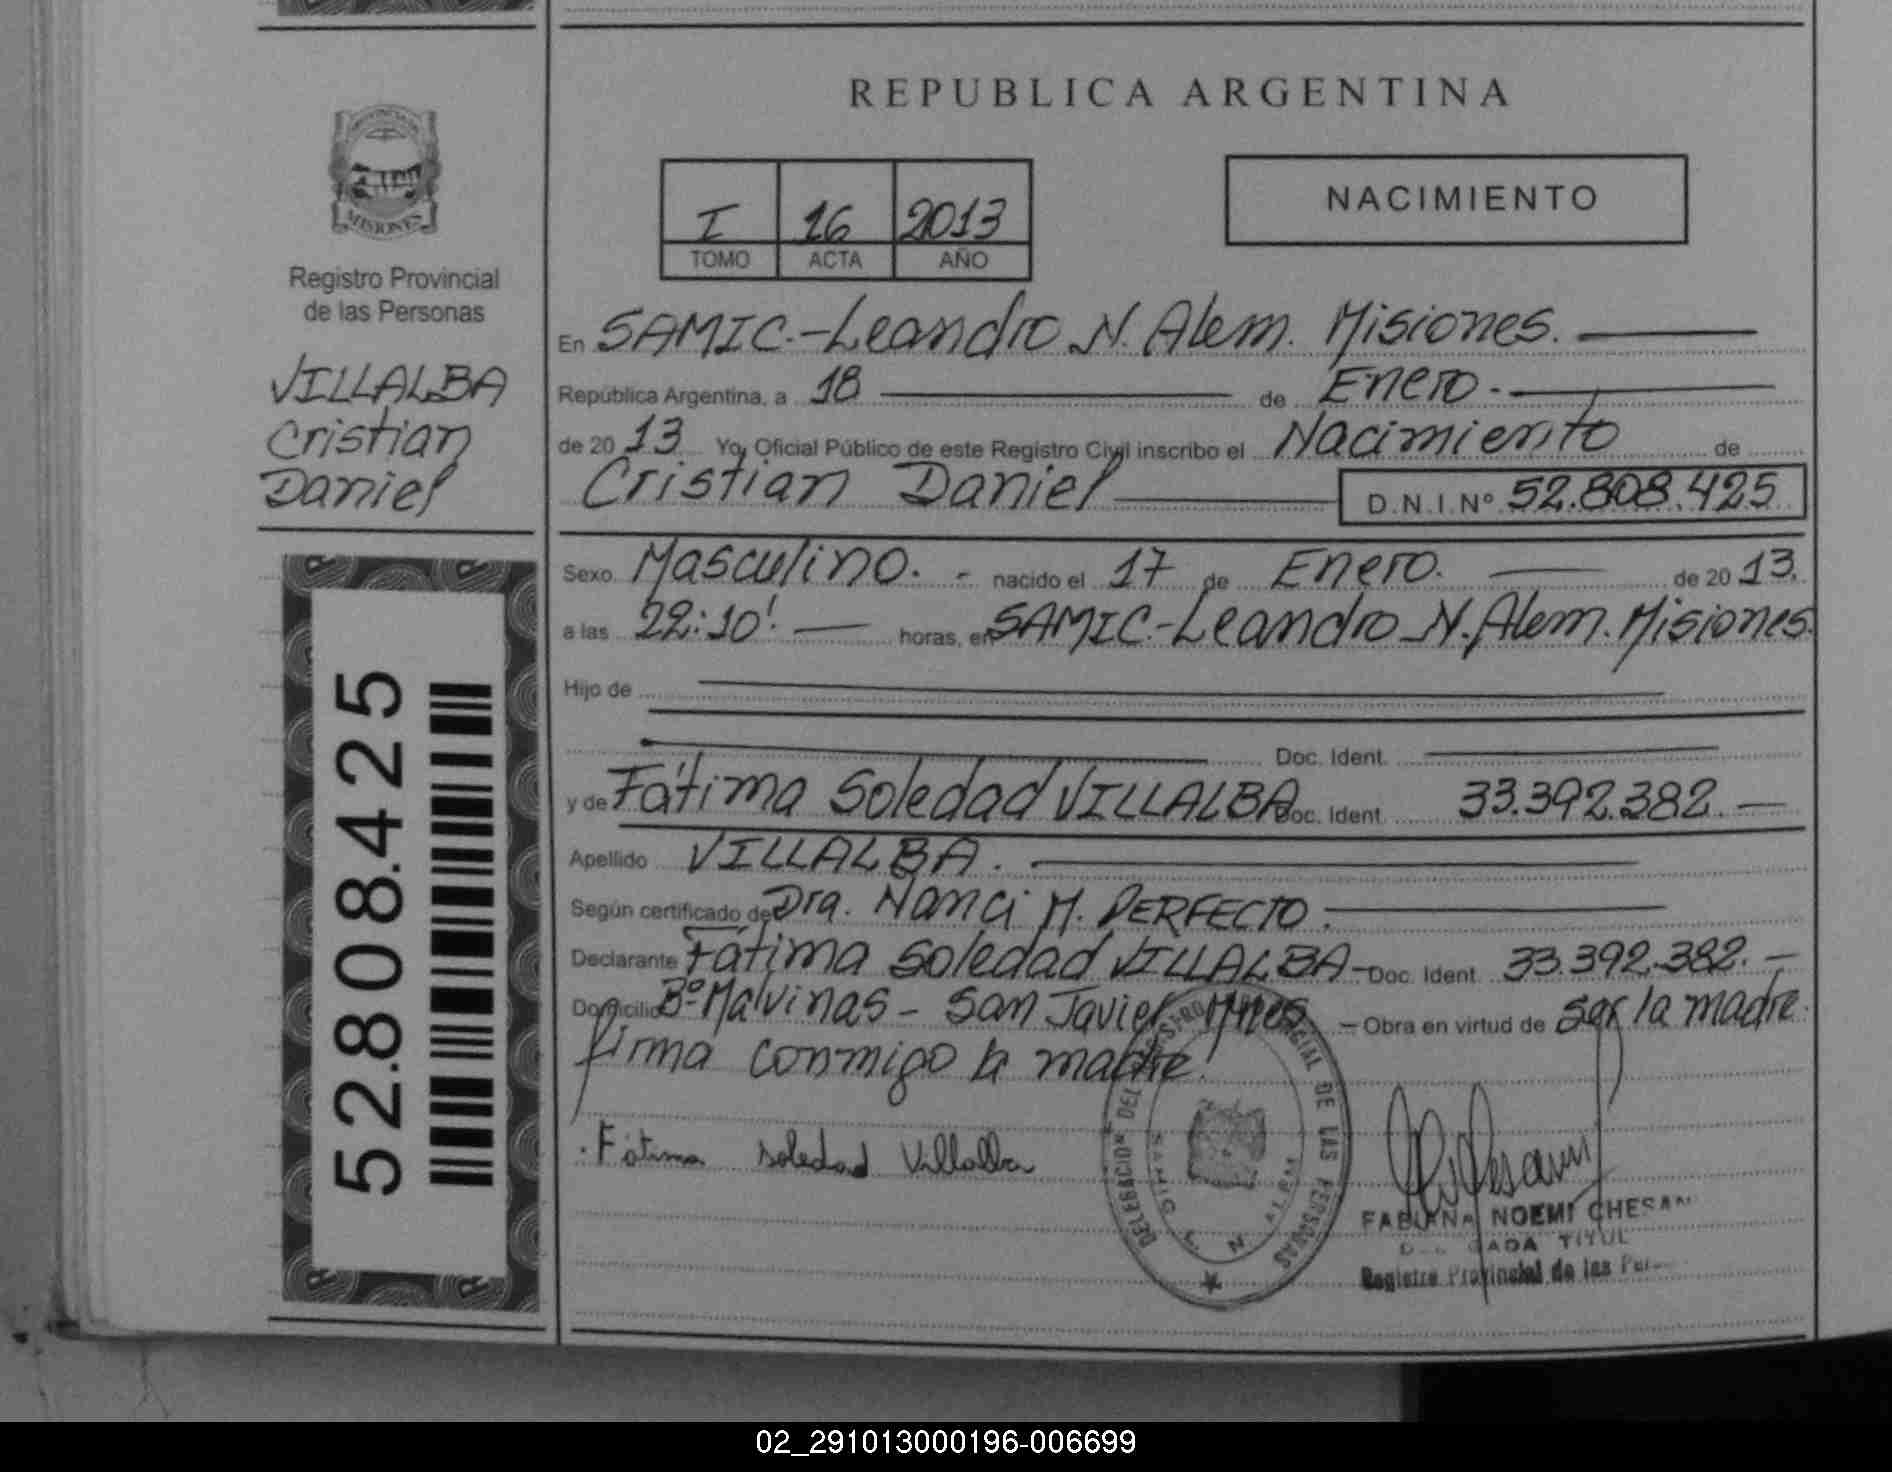 REPUBLICA ARGENTINA
MISIONES
Registro Provincial
de las Personas
VILLALBA
Cristian
Daniel
52.808.425
I 16 2013
TOMO ACTA AÑO
NACIMIENTO
En SAMIC.-Leandro N. Alem. Misiones.
República Argentina, a 18 de Enero.-
de 20 13 Yo, Oficial Público de este Registro Civil inscribo el Nacimiento de
Cristian Daniel D.N.I.Nº 52.808.425
Sexo Masculino.- nacido el 17 de Enero. de 20 13.
a las 22:10'. horas, en SAMIC.-Leandro N. Alem. Misiones.
Hijo de
Doc. Ident.
y de Fátima Soledad VILLALBA Doc. Ident. 33.392.382.
Apellido VILLALBA.
Según certificado de Dra. Nanci M. PERFECTO.
Declarante Fátima Soledad VILLALBA- Doc. Ident. 33.392.382.-
Domicilio Bº Malvinas - San Javier Mnes - Obra en virtud de ser la madre.
firma conmigo la madre.
Fátima Soledad Villalba
DELEGACION DEL REGISTRO PROVINCIAL DE LAS PERSONAS
SAMIC L. N. ALEM
FABIANA NOEMI CHESAN
TITUL
Registro Provincial de las Per
02_291013000196-006699